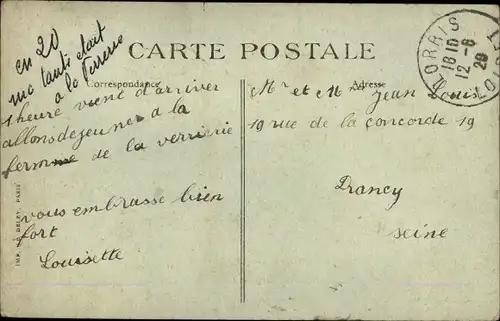 en 20
ma tante était
à la Perrerie
CARTE POSTALE
Correspondance
Adresse
LORRIS
18 10
12 -6
29
LOIRET
1 heure vient d'arriver
allons dejeuner a la
ferme de la verrerie
vous embrasse bien
fort
Louisette
Mr et Mme Jean Louis
19 rue de la concorde 19
Drancy
seine